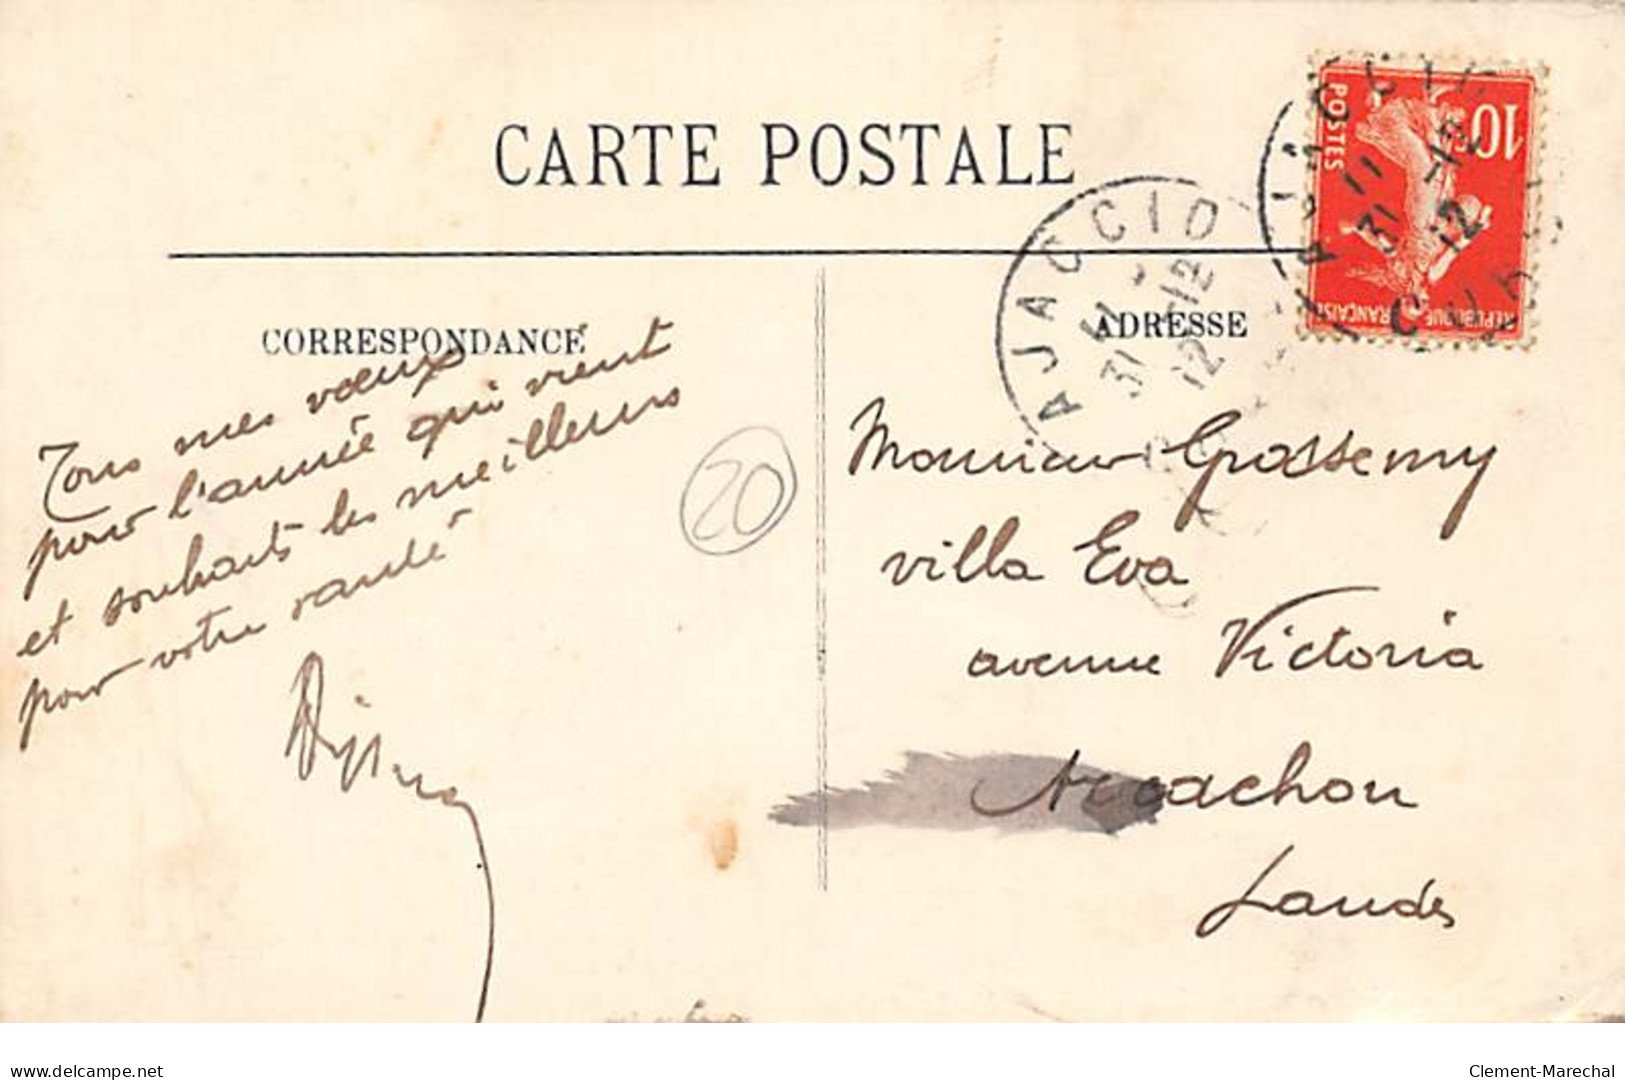 CARTE POSTALE
CORRESPONDANCE
Tous mes vœux
pour l'année qui vient
et souhaits les meilleurs
pour votre santé
20
ADRESSE
AJACCIO
11
31 -12
12
AJACCIO
11
31 -12
12
CORSE
10c
POSTES
REPUBLIQUE FRANÇAISE
Monsieur Grossemy
villa Eva
avenue Victoria
Arcachon
Landes
delcampe.net
Clement-Marechal